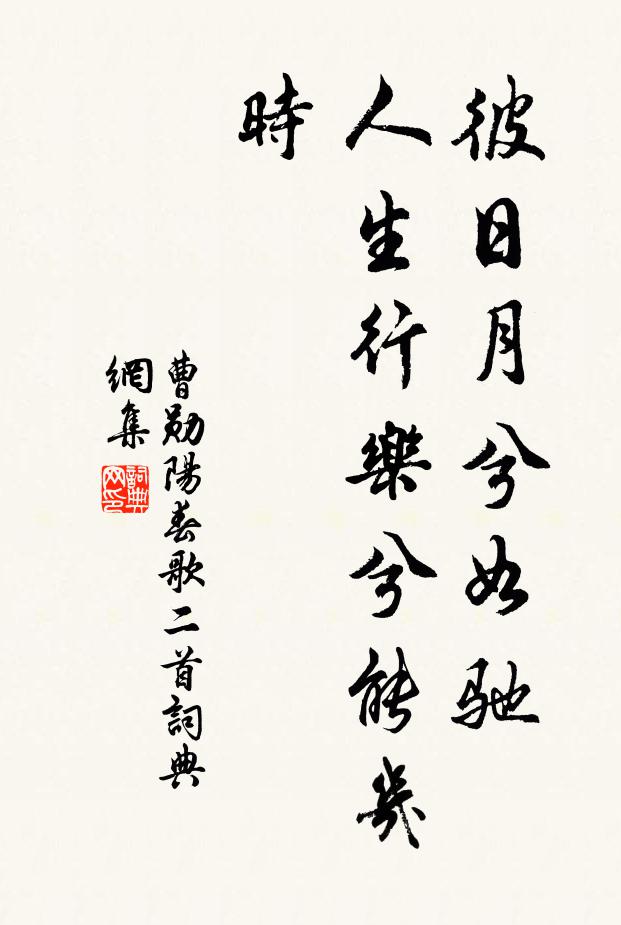 彼日月兮如馳
人生行樂兮能幾
時
曹勛陽春歌二首詞典
網集
詞典
网印